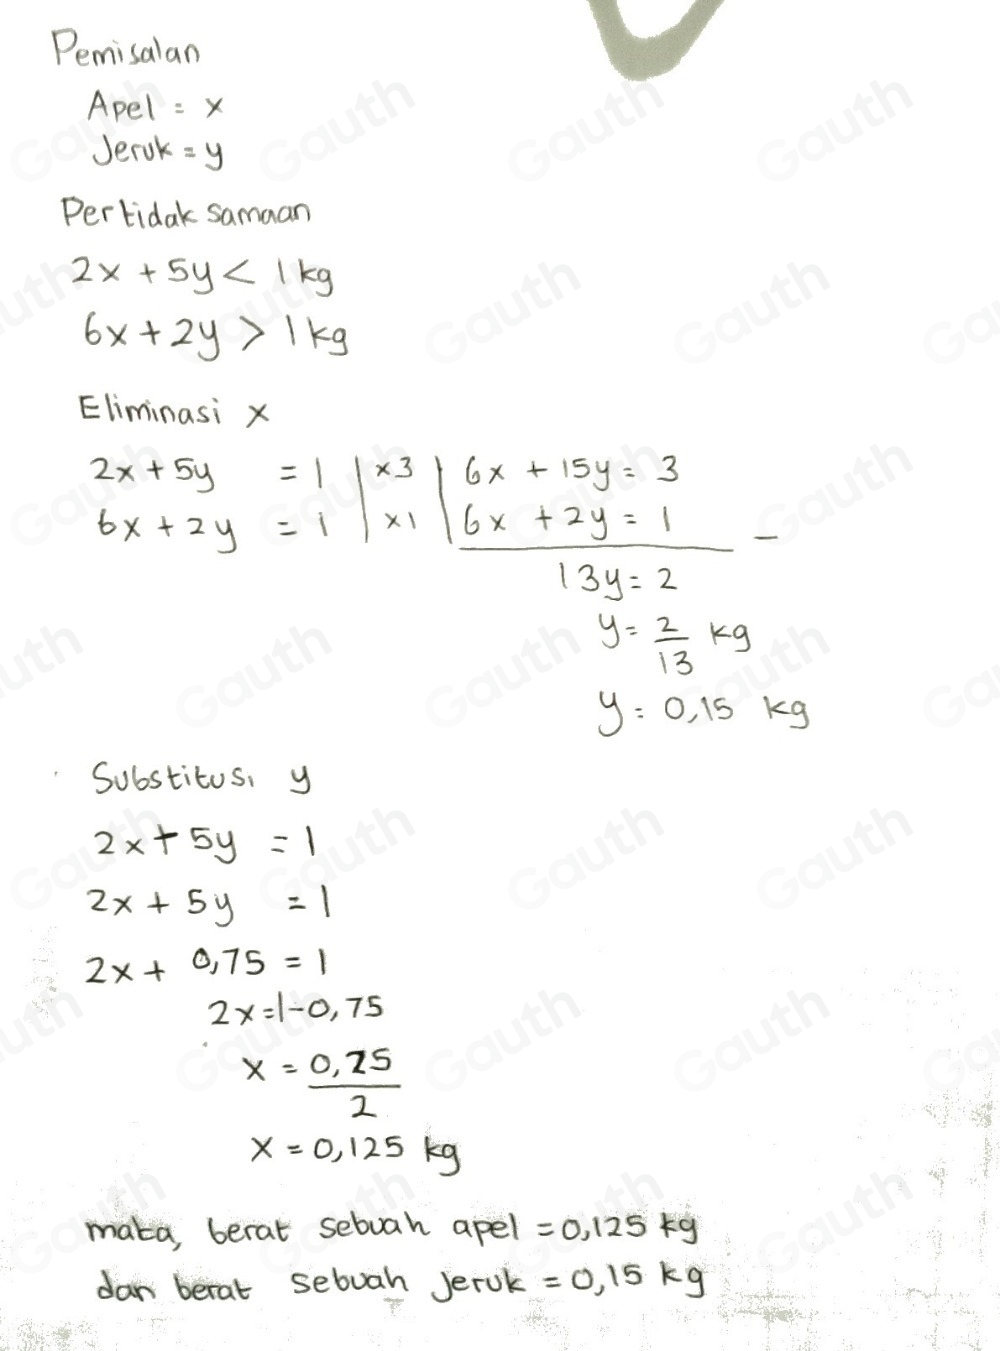 Pemisalan
Apel = x
Jeruk = y
Pertidaksamaan
2x + 5y < 1 kg
6x + 2y > 1 kg
Eliminasi x
2x + 5y = 1 | x3 | 6x + 15y = 3
6x + 2y = 1 | x1 | 6x + 2y = 1 -
13y = 2
y = 2/13 kg
y = 0,15 kg
Substitusi y
2x + 5y = 1
2x + 5y = 1
2x + 0,75 = 1
2x = 1 - 0,75
x = 0,25/2
x = 0,125 kg
maka, berat sebuah apel = 0,125 kg
dan berat sebuah jeruk = 0,15 kg